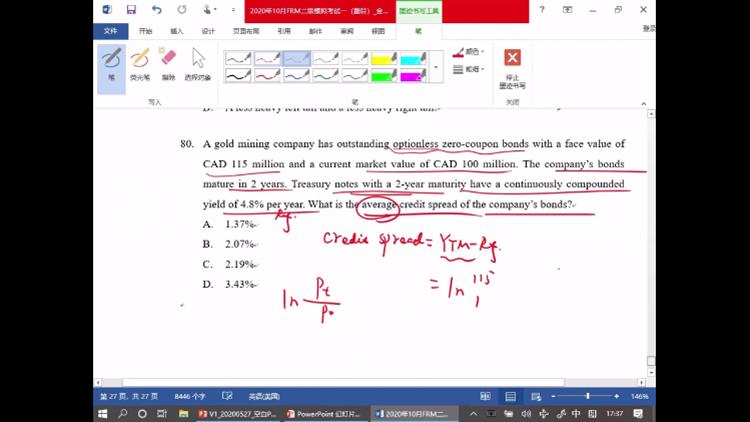 2020年10月FRM二级模拟考试一（题目）_金...
墨迹书写工具
登录
文件 开始 插入 设计 页面布局 引用 邮件 审阅 视图 笔
笔 荧光笔 擦除 选择对象
颜色
粗细
停止
墨迹书写
写入 笔 关闭
D. A less heavy left tail and a less heavy right tail.
80. A gold mining company has outstanding optionless zero-coupon bonds with a face value of
CAD 115 million and a current market value of CAD 100 million. The company's bonds
mature in 2 years. Treasury notes with a 2-year maturity have a continuously compounded
yield of 4.8% per year. What is the average credit spread of the company's bonds?
Rf
A. 1.37%
B. 2.07%
C. 2.19%
D. 3.43%
Credit spread = YTM-Rf.
= ln 115
1
ln Pt
P0
第 27 页，共 27 页 8446 个字 英语(美国) 146%
V1_20200527_空白P... PowerPoint 幻灯片... 2020年10月FRM二... 中 17:37